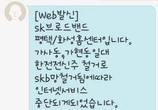 [Web발신]
sk브로드밴드
평택/화성홈센터입니다.
가사동,가현동일대
한전전신주 철거로
skb망철거됨에따라
인터넷서비스
중단되게되었습니다.